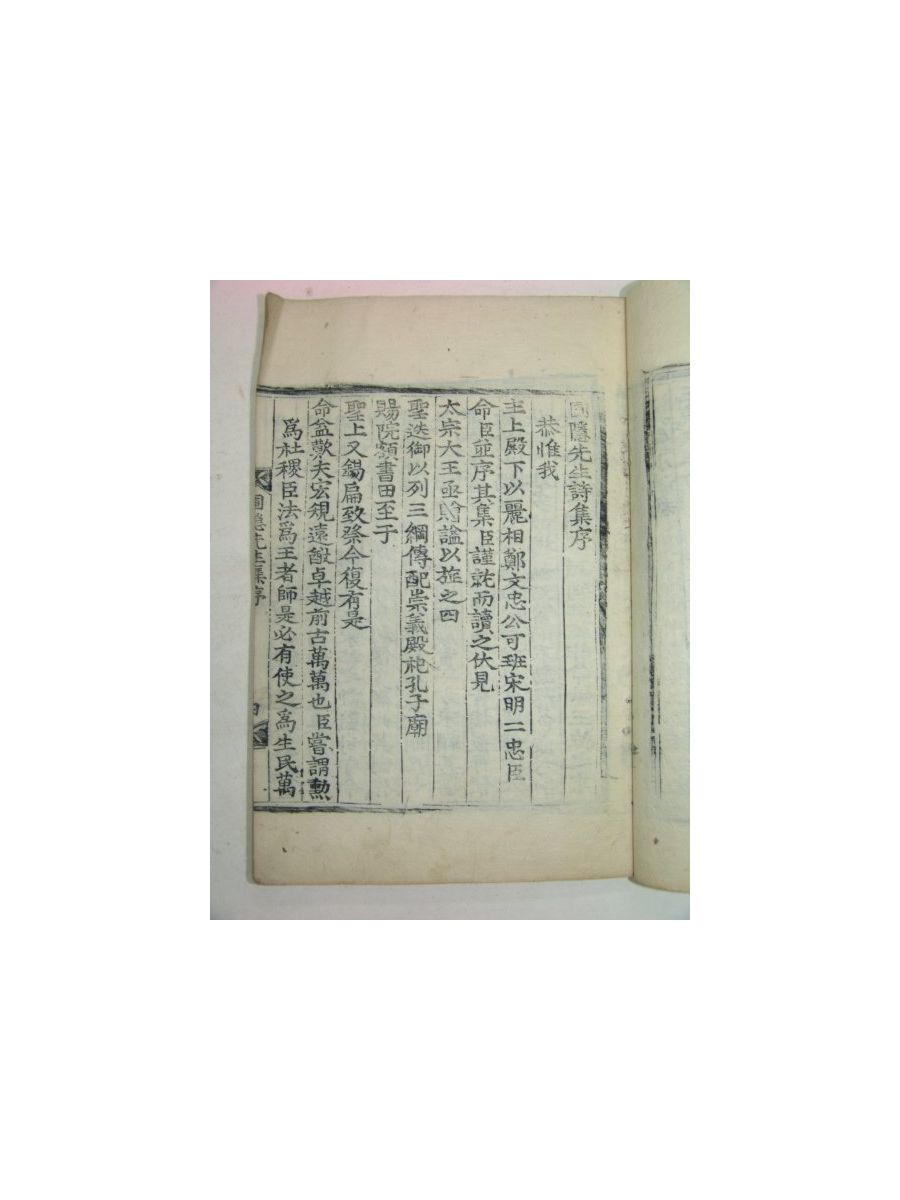 圃隱先生詩集序
恭惟我
主上殿下以麗相鄭文忠公可班宋明二忠臣
命臣並序其集臣謹就而讀之伏見
太宗大王亟贈謚以旌之四
聖迭御以列三綱傳配崇義殿祀孔子廟
賜院額書田至于
聖上又錫扁致祭今復有是
命益歎夫宏規遠猷卓越前古萬萬也臣嘗謂勳
爲社稷臣法爲王者師是必有使之爲生民萬
圃隱先生集序
四